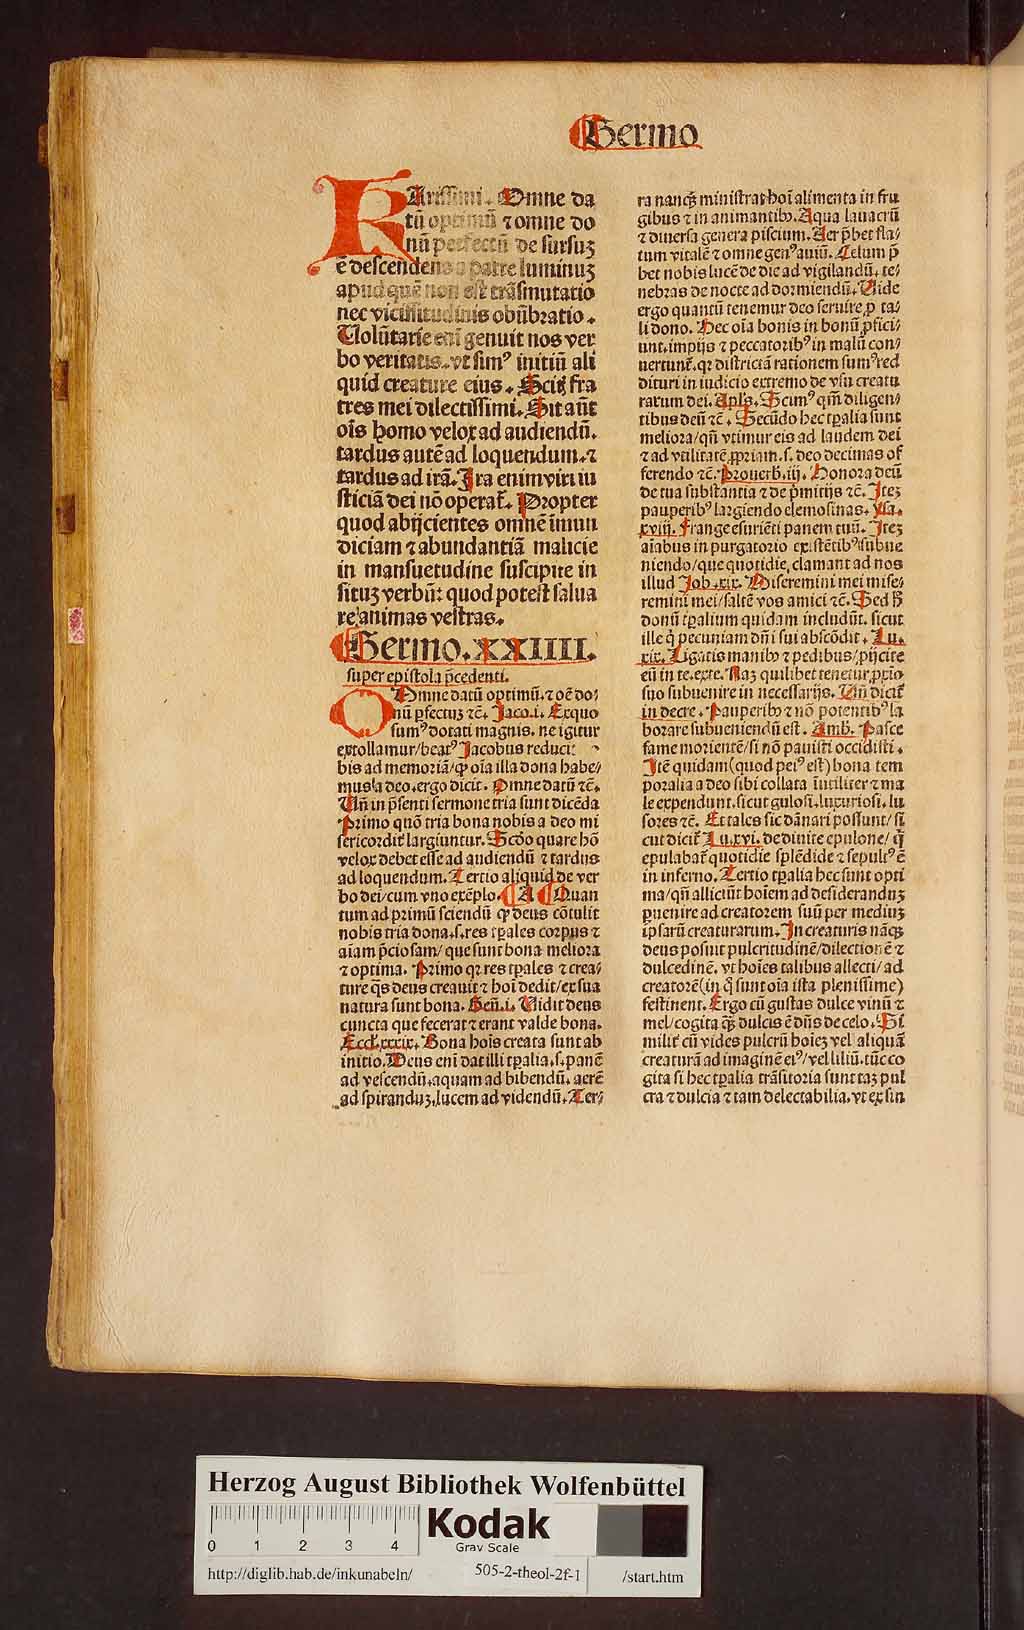 Sermo
KArissimi. Omne da
tū optimū ⁊ omne do
nū perfectū de sursuꝫ
ē descendens a patre luminuꝫ
apud quē non est trāsmutatio
nec vicissitudinis obūbratio.
Uolūtarie eni genuit nos ver
bo veritatis. vt simꝰ initiū ali
quid creature eius. Scitꝭ fra
tres mei dilectissimi. Sit aūt
oīs homo velox ad audiendū.
tardus autē ad loquendum. ⁊
tardus ad irā. Ira enim viri iu
sticiā dei nō operat̄. Propter
quod abijcientes omnē imun
diciam ⁊ abundantiā malicie
in mansuetudine suscipite in
situꝫ verbū: quod potest salua
re animas vestras.
Sermo. XXIIII.
super epistola p̄cedenti.
OMne datū optimū. ⁊ oē do/
nū ꝑfectuꝫ ⁊c̄. Jaco. i. Ex quo
sumꝰ dotati magnis. ne igitur
extollamur/ beatꝰ Jacobus reducit
bis ad memoriā/ ꝙ oīa illa dona habe/
mus a deo. ergo dicit. Omne datū ⁊c̄.
Un̄ in p̄senti sermone tria sunt dicēda
Primo quō tria bona nobis a deo mi
sericordit̄ largiuntur. Scd̄o quare hō
velox debet esse ad audiendū ⁊ tardus
ad loquendum. Tertio aliquid de ver
bo dei/ cum vno exēplo. A Quan
tum ad primū sciendū ꝙ deus cōtulit
nobis tria dona. s. res tꝑales corpus ⁊
aīam p̄ciosam/ que sunt bona meliora
⁊ optima. Primo qꝛ res tꝑales ⁊ crea/
ture q̄s deus creauit ⁊ hoī dedit/ ex sua
natura sunt bona. Gen̄. i. Uidit deus
cuncta que fecerat ⁊ erant valde bona.
Eccl̄. xxxix. Bona hoīs creata sunt ab
initio. Deus eni dat illi tꝑalia. s. panē
ad vescendū. aquam ad bibendū. aerē
ad spiranduꝫ. lucem ad videndū. Ter/
ra nanqꝫ ministrat hoī alimenta in fru
gibus ⁊ in animantibꝰ. Aqua lauacrū
⁊ diuersa genera piscium. Aer p̄bet fla/
tum vitalē ⁊ omne genꝰ auiū. Celum p̄
bet nobis lucē de die ad vigilandū. te/
nebras de nocte ad dormiendū. Uide
ergo quantū tenemur deo seruire ꝓ ta/
li dono. Hec oīa bonis in bonū ꝓfici/
unt. impijs ⁊ peccatoribꝰ in malū con/
uertunt̄. qꝛ districtā rationem sumꝰ red
dituri in iudicio extremo de vsu creatu
rarum dei. Apl̄s. Scimꝰ qm̄ diligen/
tibus deū ⁊c̄. Secūdo hec tꝑalia sunt
meliora/ qn̄ vtimur eis ad laudem dei
⁊ ad vtilitatē ꝓpriam. s. deo decimas of
ferendo ⁊c̄. Prouerb. iij. Honora deū
de tua substantia ⁊ de p̄mitijs ⁊c̄. Iteꝫ
pauperibꝰ largiendo elemosinas. Ysa.
xviij. Frange esuriēti panem tuū. Iteꝫ
aīabus in purgatorio existētibꝰ subue
niendo/ que quotidie clamant ad nos
illud Job. xix. Miseremini mei mise/
remini mei/ saltē vos amici ⁊c̄. Sed h̄
donū tꝑalium quidam includūt. sicut
ille q̄ pecuniam dn̄i sui abscōdit. Lu.
xix. Ligatis manibꝰ ⁊ pedibus/ ꝓijcite
eū in te. exte. Naꝫ quilibet tenetur ꝓxīo
suo subuenire in necessarijs. Un̄ dicit̄
in decre. Pauperibꝰ ⁊ nō potentibꝰ la
borare subueniendū est. Amb. Pasce
fame morientē/ si nō pauisti occidisti.
Itē quidam (quod peiꝰ est) bona tem
poralia a deo sibi collata inutiliter ⁊ ma
le expendunt. sicut gulosi. luxuriosi. lu
sores ⁊c̄. Et tales sic dānari possunt/ si
cut dicit̄ Lu. xvi. de diuite epulone/ q̄
epulabat̄ quotidie splēdide ⁊ sepultꝰ ē
in inferno. Tertio tꝑalia hec sunt opti
ma/ qn̄ alliciūt hoīem ad desideranduꝫ
ꝑuenire ad creatorem suū per mediuꝫ
ip̄sarū creaturarum. In creaturis nāqꝫ
deus posuit pulcritudinē/ dilectionē ⁊
dulcedinē. vt hoīes talibus allecti/ ad
creatorē (in q̄ sunt oīa ista plenissime)
festinent. Ergo cū gustas dulce vinū ⁊
mel/ cogita qꝫ dulcis ē dn̄s de celo. Si
milit̄ cū vides pulcrū hoīeꝫ vel aliquā
creaturā ad imaginē eiꝰ/ vel liliū. tūc co
gita si hec tꝑalia trāsitoria sunt taꝫ pul
cra ⁊ dulcia ⁊ tam delectabilia. vt ex sin
Herzog August Bibliothek Wolfenbüttel
0 1 2 3 4
Kodak
Gray Scale
http://diglib.hab.de/inkunabeln/ 505-2-theol-2f-1 /start.htm